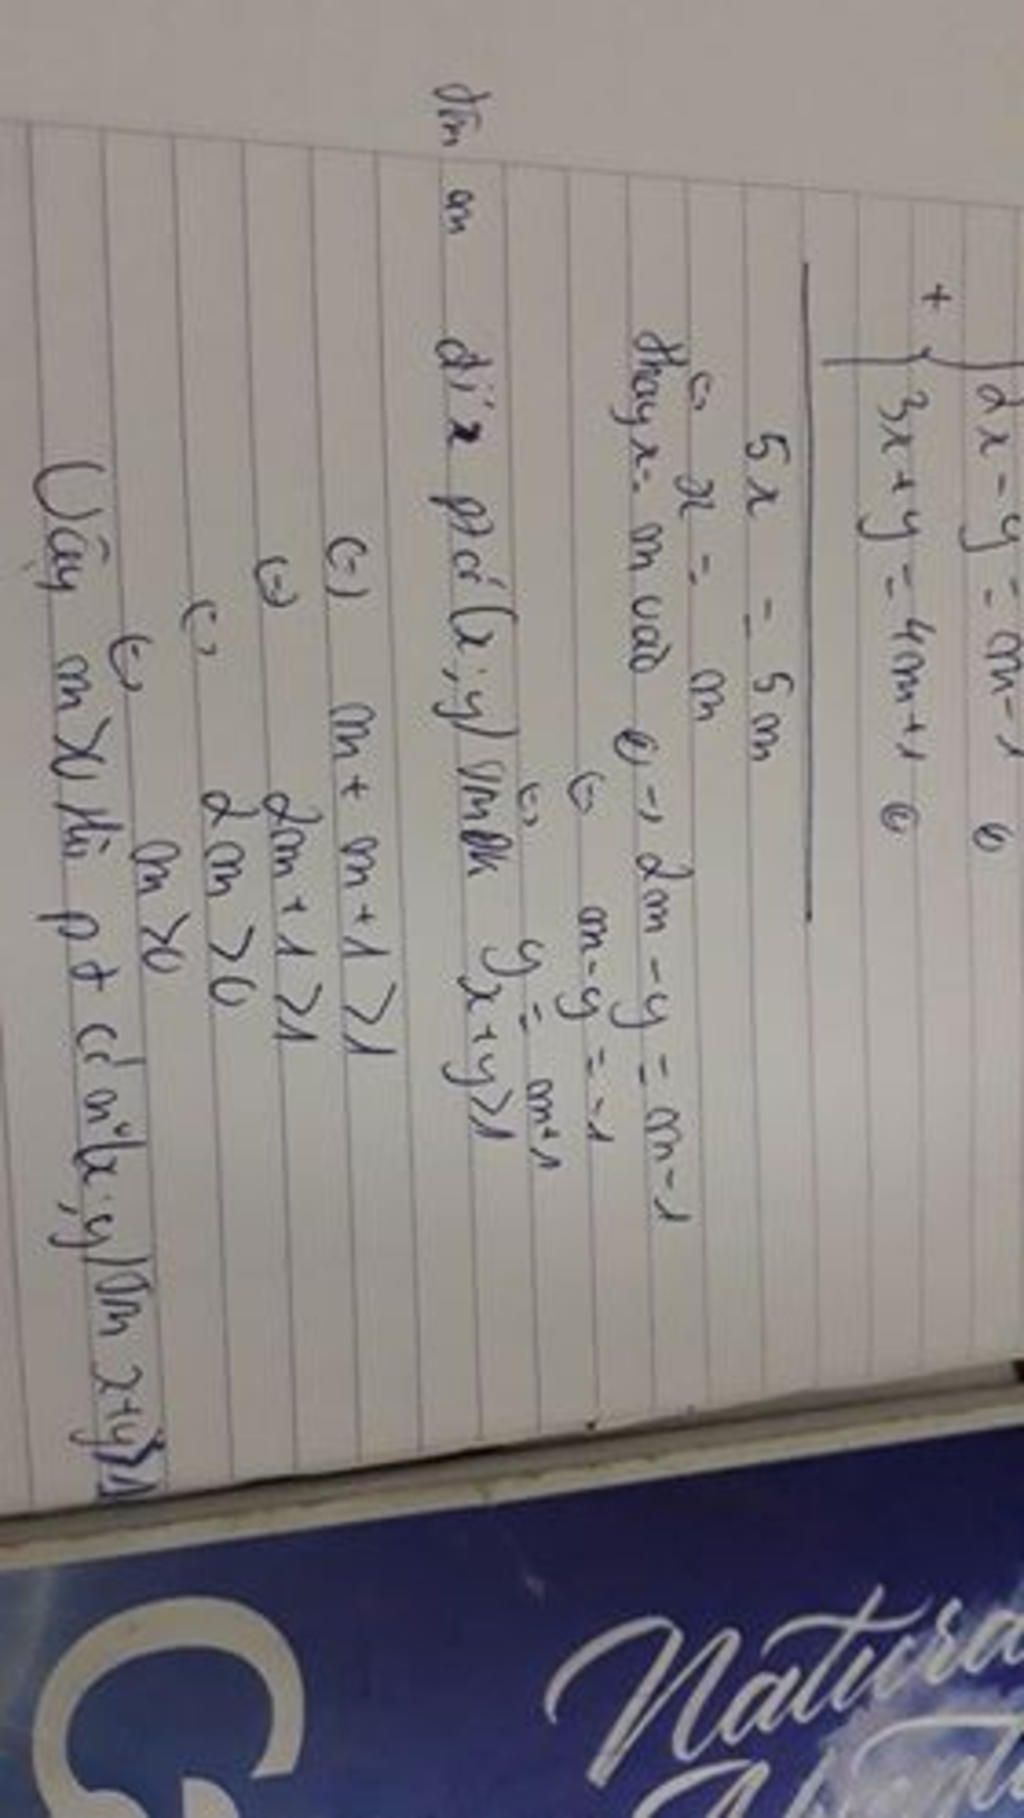 2x - y = m - 1 ①
+
3x + y = 4m + 1 ②
5x = 5m
⇔ x = m
thay x = m vào ① → 2m - y = m - 1
⇔ m - y = -1
⇔ y = m + 1
tìm m để pt có (x; y) tmđk x + y > 1
⇔ m + m + 1 > 1
⇔ 2m + 1 > 1
⇔ 2m > 0
⇔ m > 0
Vậy m > 0 thì pt có n° (x; y) tm x + y > 1
Natura